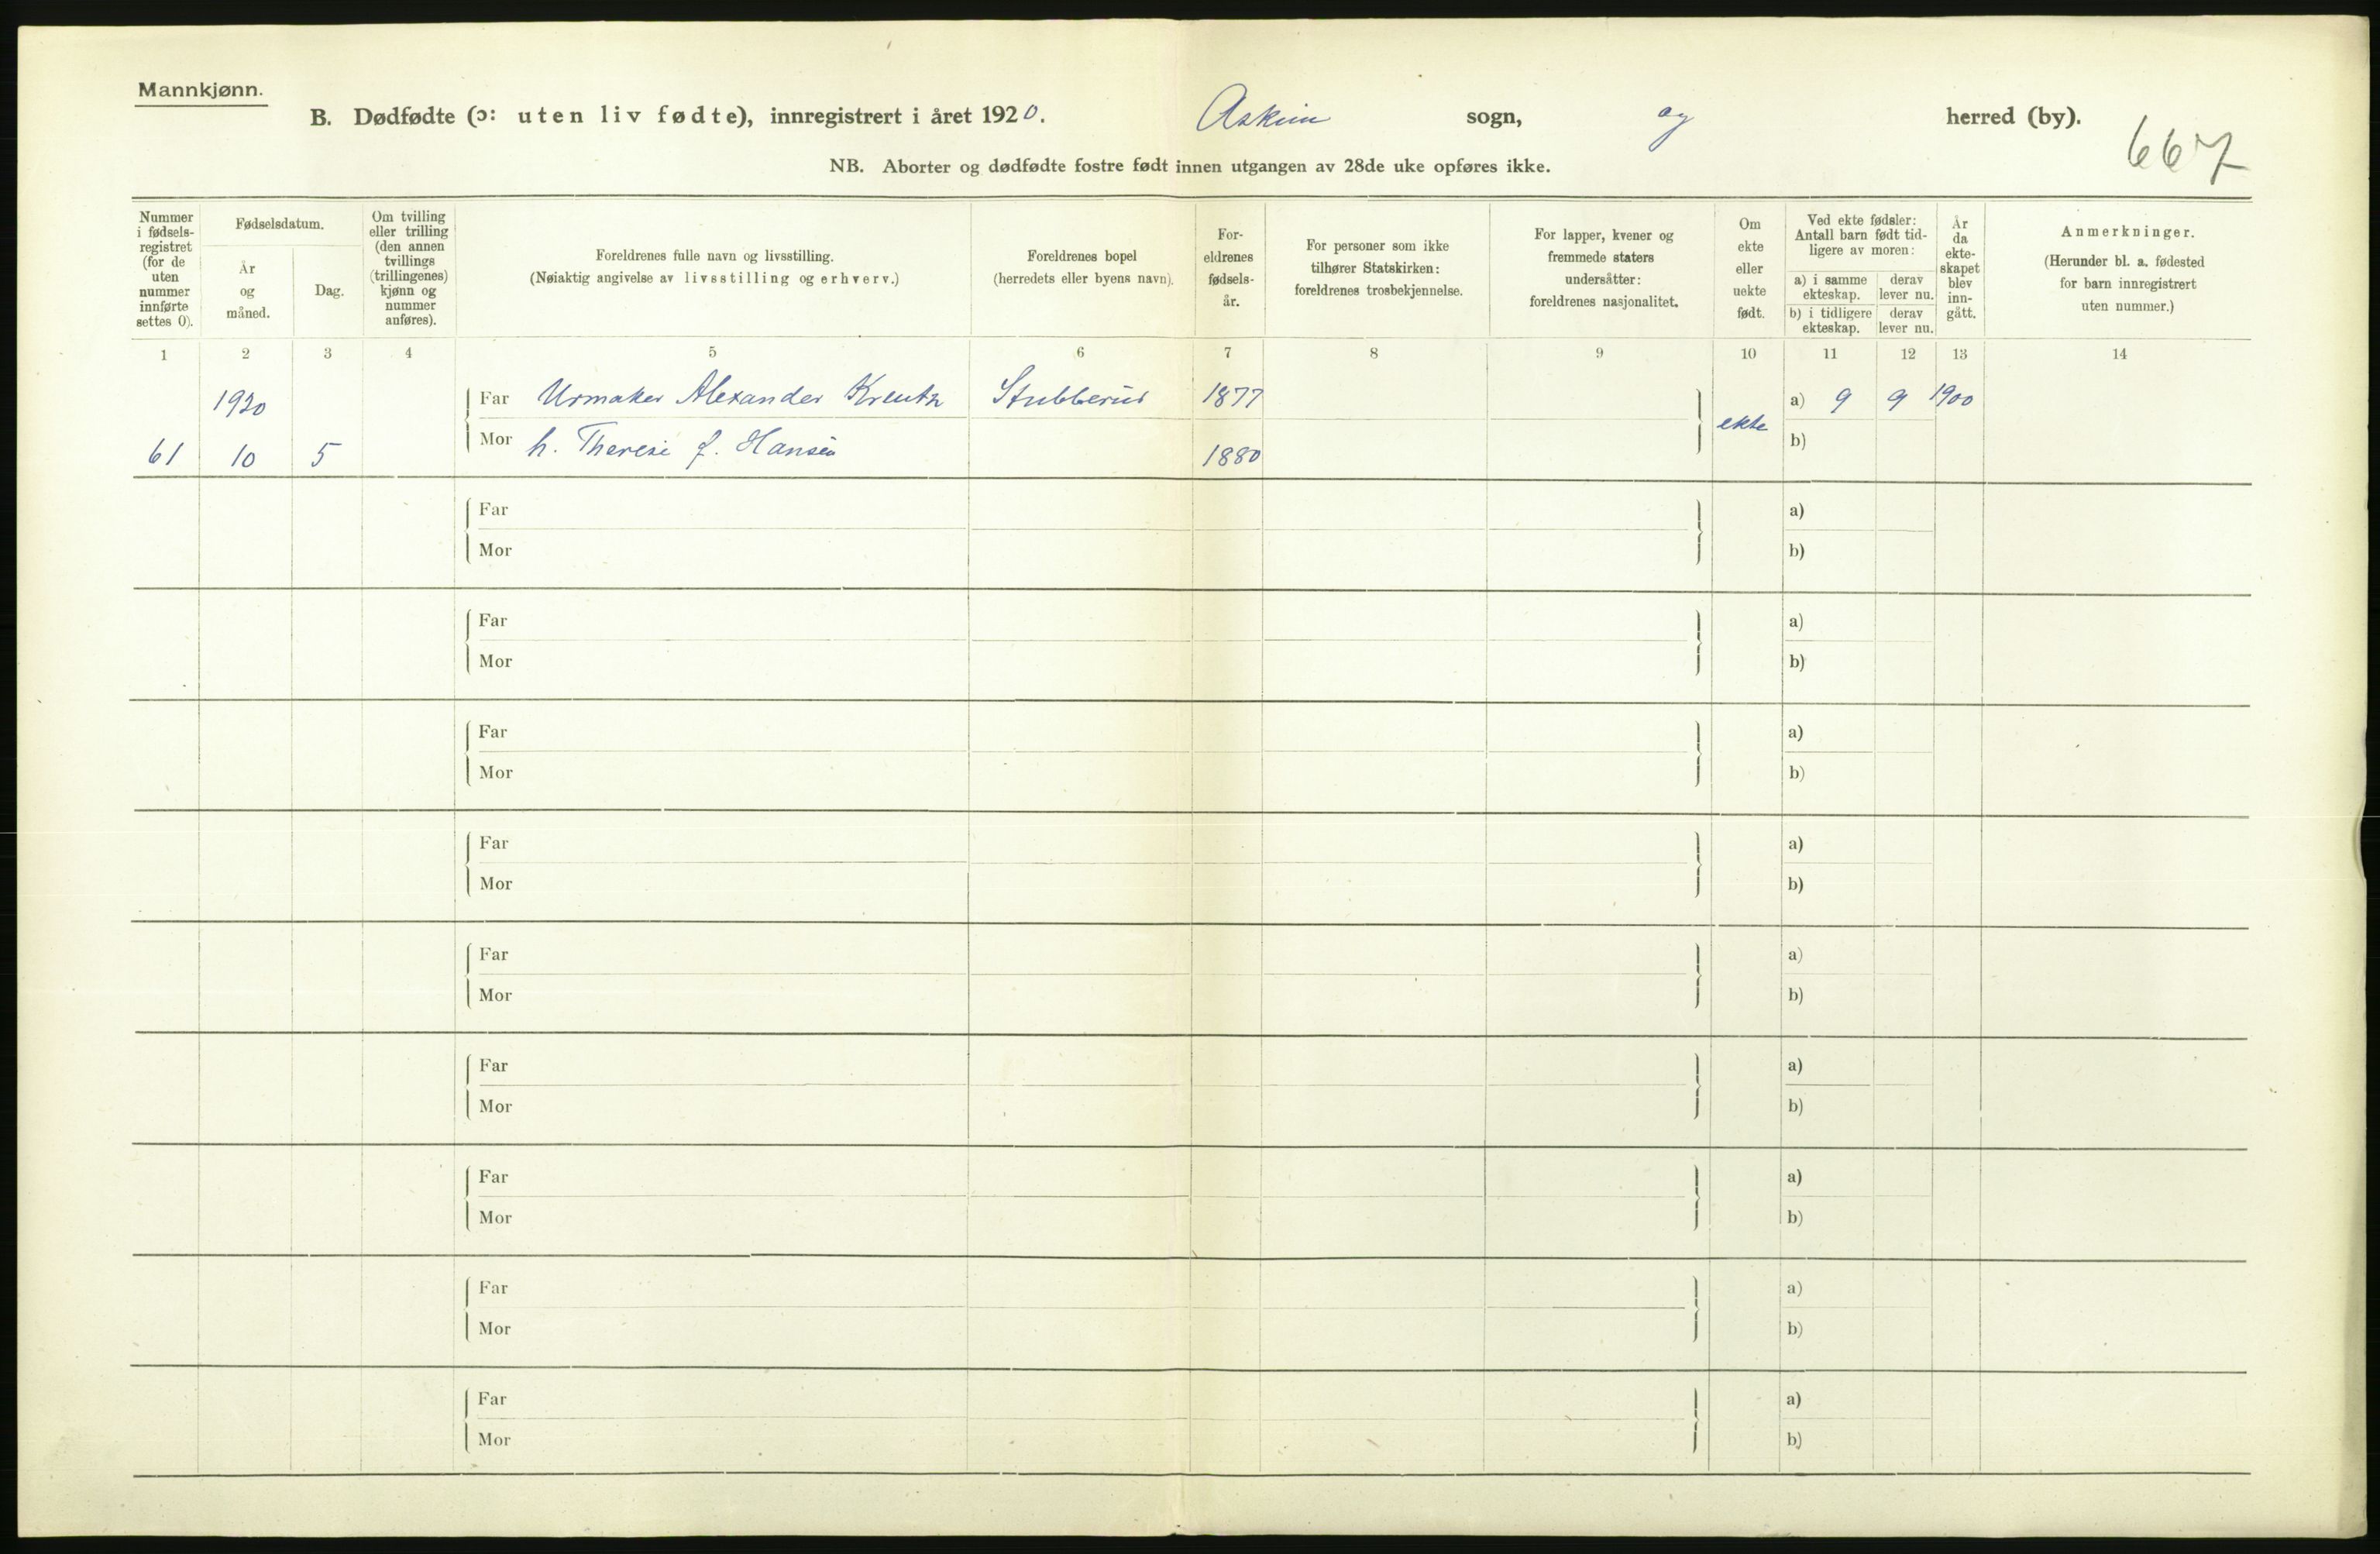 Mannkjønn.
B. Dødfødte (ɔ: uten liv fødte), innregistrert i året 1920. Askim sogn, og herred (by).
667
NB. Aborter og dødfødte fostre født innen utgangen av 28de uke opføres ikke.
Nummer i fødsels-registret (for de uten nummer innførte settes 0).
Fødselsdatum.
År og måned.
Dag.
Om tvilling eller trilling (den annen tvillings (trillingenes) kjønn og nummer anføres).
Foreldrenes fulle navn og livsstilling.
(Nøiaktig angivelse av livsstilling og erhverv.)
Foreldrenes bopel
(herredets eller byens navn).
For-eldrenes fødsels-år.
For personer som ikke tilhører Statskirken: foreldrenes trosbekjennelse.
For lapper, kvener og fremmede staters undersåtter: foreldrenes nasjonalitet.
Om ekte eller uekte født.
Ved ekte fødsler: Antall barn født tid-ligere av moren:
a) i samme ekteskap.
derav lever nu.
b) i tidligere ekteskap.
derav lever nu.
År da ekte-skapet blev inn-gått.
Anmerkninger.
(Herunder bl. a. fødested for barn innregistrert uten nummer.)
1 2 3 4 5 6 7 8 9 10 11 12 13 14
1920 Far Urmaker Alexander Kreutz Stubberud 1877 ekte a) 9 9 1900
61 10 5 Mor h. Therese f. Hansen 1880 b)
Far a)
Mor b)
Far a)
Mor b)
Far a)
Mor b)
Far a)
Mor b)
Far a)
Mor b)
Far a)
Mor b)
Far a)
Mor b)
Far a)
Mor b)
Far a)
Mor b)